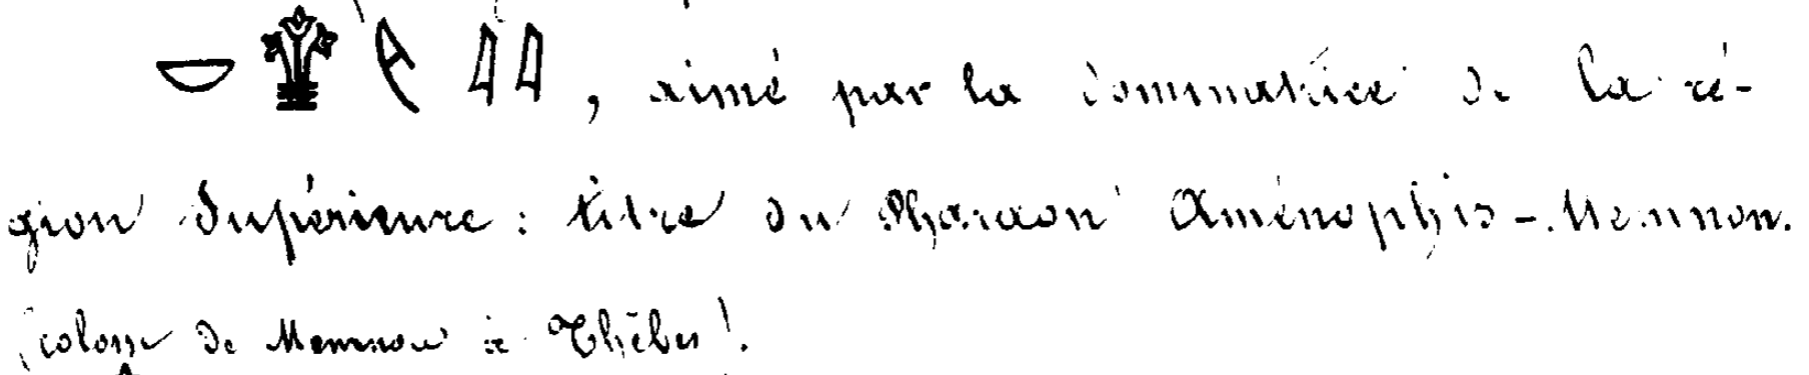 𓎟 𓇗 𓌻 𓇋𓇋, aimé par la dominatrice de la ré-
gion Supérieure : titre du Pharaon Aménophis-Memnon.
(colosse de Memnon à Thèbes).